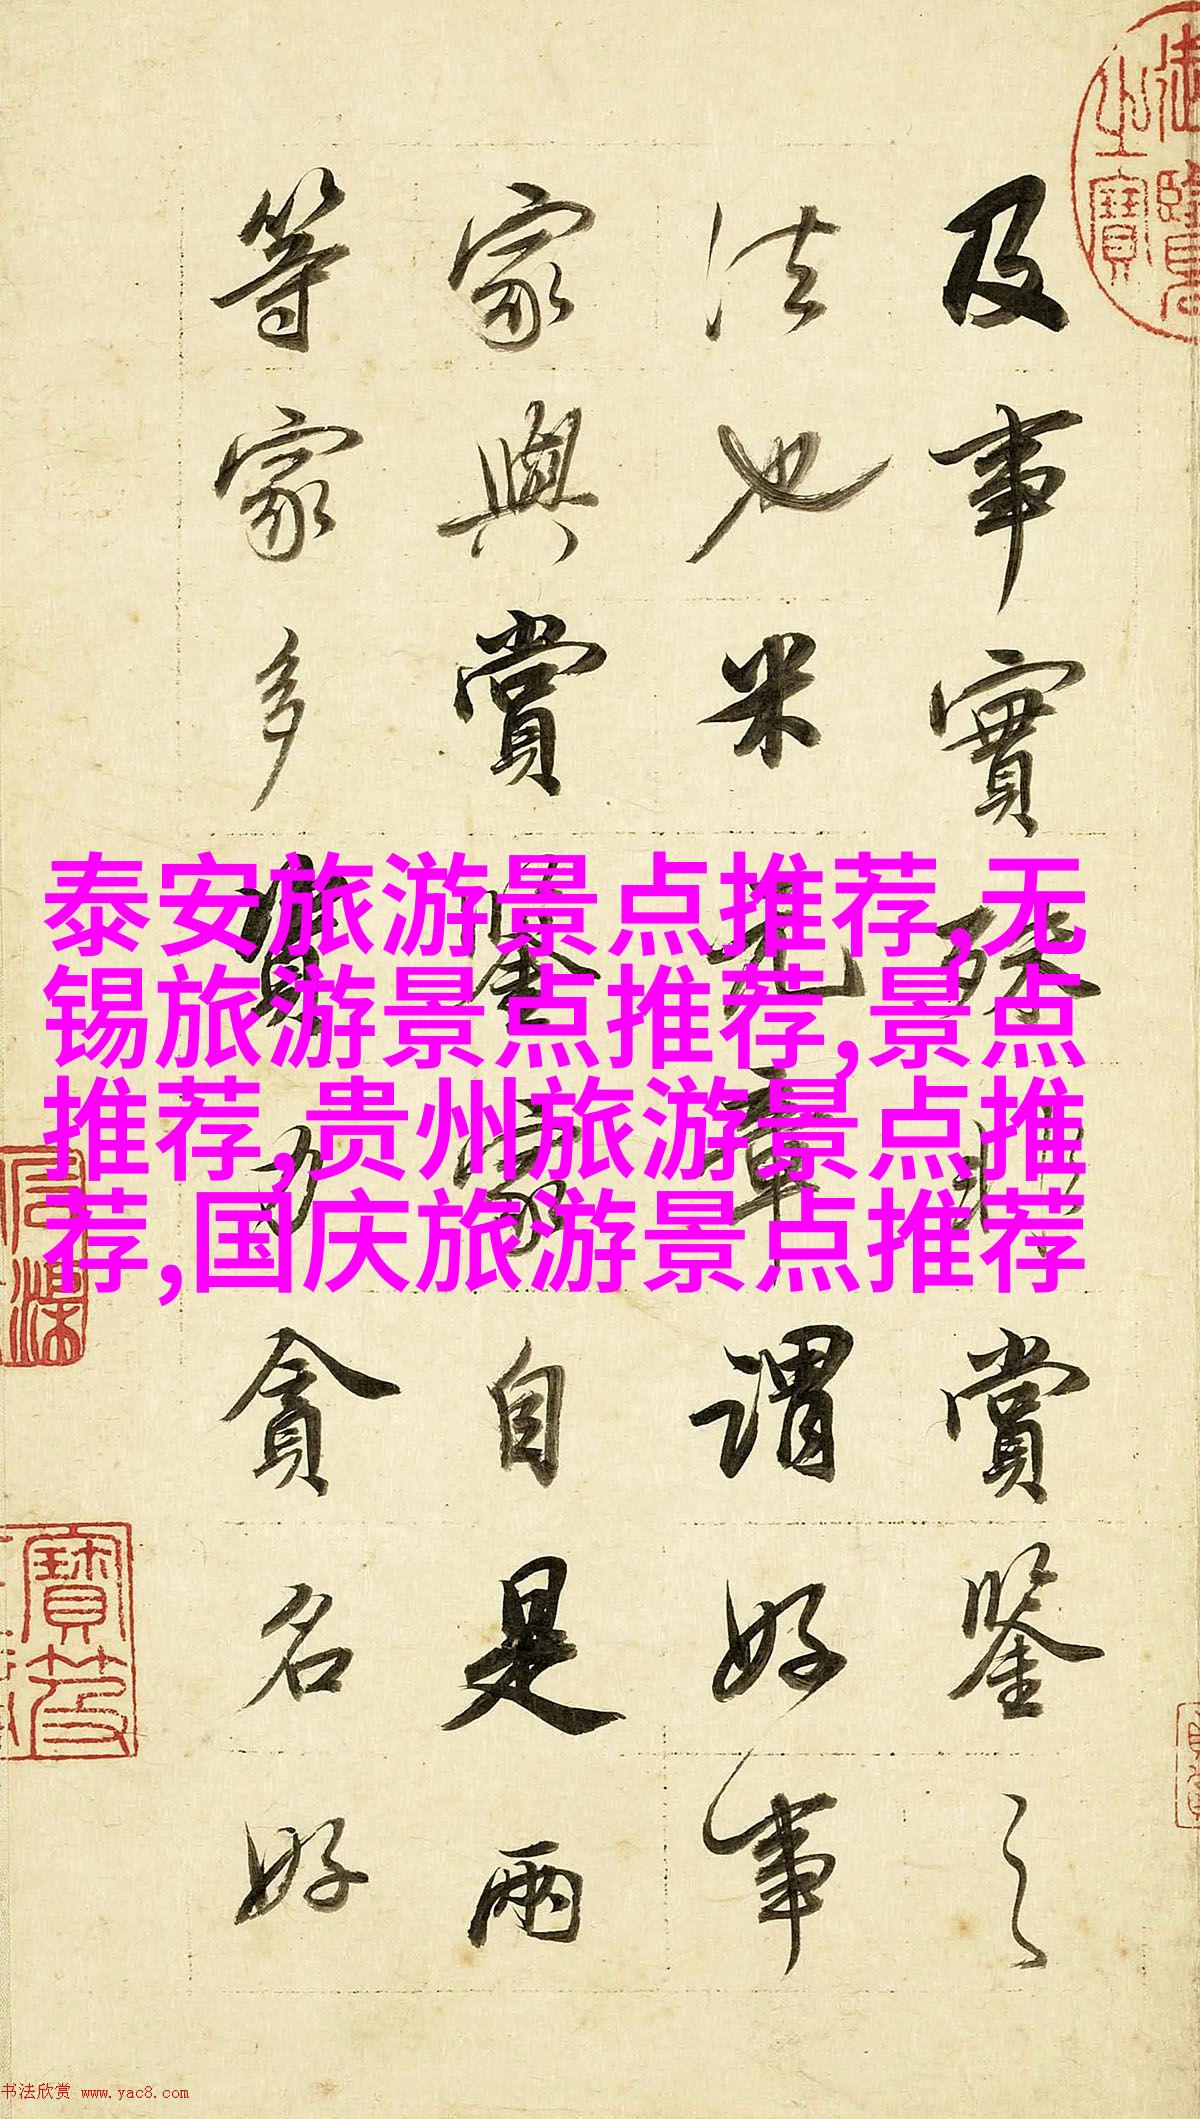 御覽之寶
及事實殊非賞鑒之
法也米元章謂好事
家與賞鑒家自是兩
等家多資力貪名好
泰安旅游景点推荐,无
锡旅游景点推荐,景点
推荐,贵州旅游景点推
荐,国庆旅游景点推荐
书法欣赏 www.yac8.com